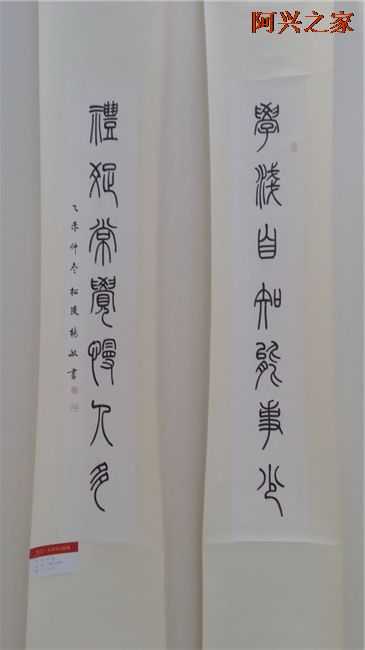 阿兴之家
學淺自知能事少
禮疏常覺慢人多
乙未仲冬松陵楊敏書